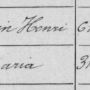 in Henri 6
aria 3